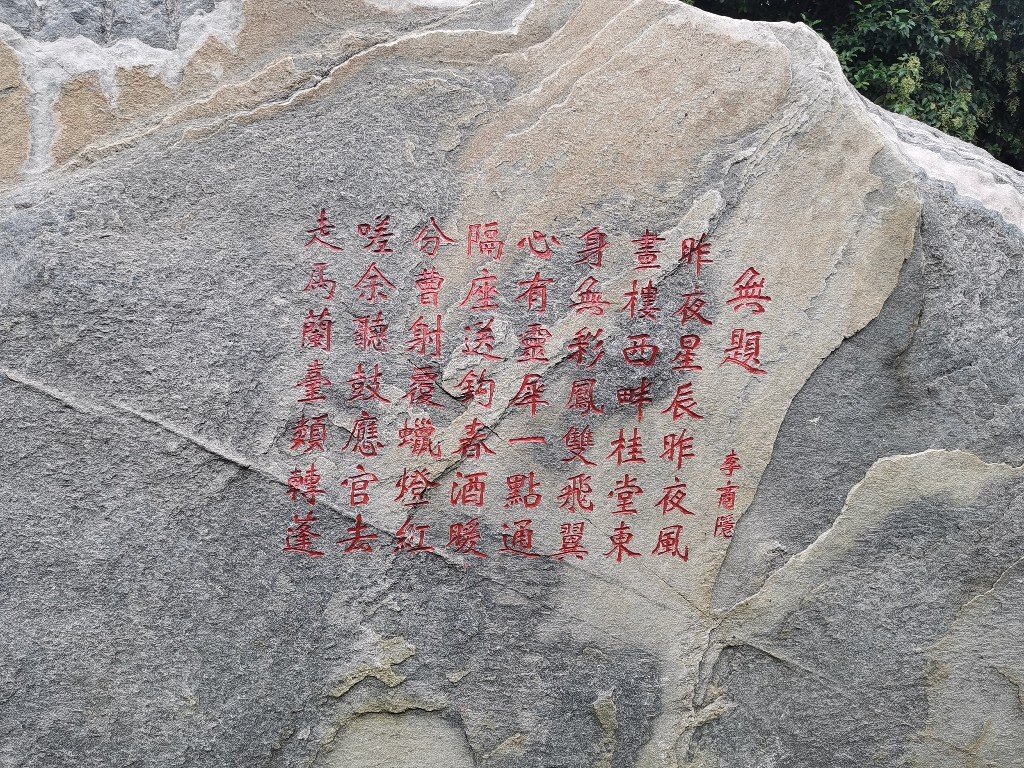 無題
李商隱
昨夜星辰昨夜風
畫樓西畔桂堂東
身無彩鳳雙飛翼
心有靈犀一點通
隔座送鈎春酒暖
分曹射覆蠟燈紅
嗟余聽鼓應官去
走馬蘭臺類轉蓬